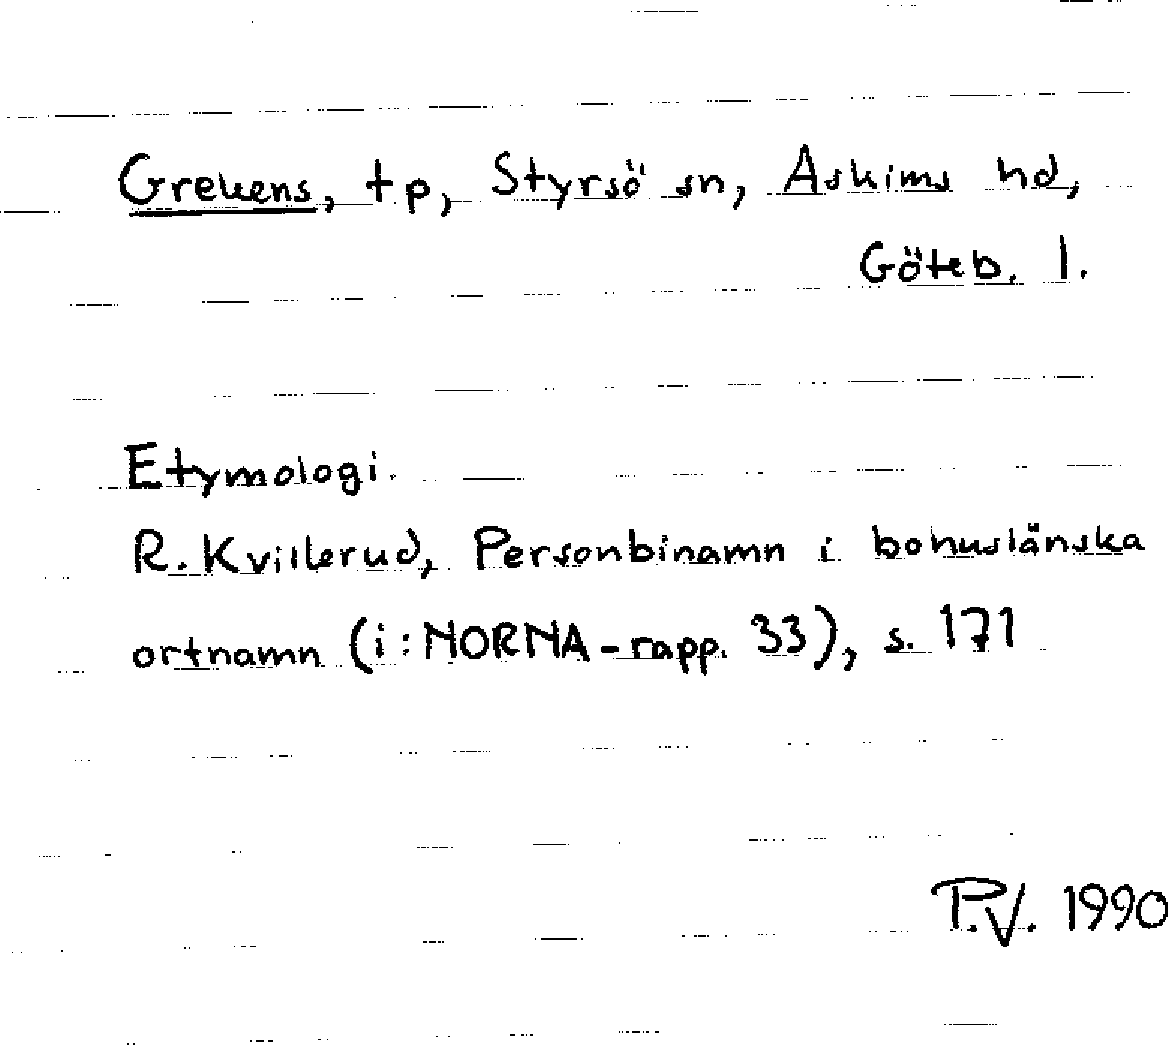 Grekens, tp, Styrsö sn, Askims hd,
Göteb. l.
Etymologi.
R. Kvillerud, Personbinamn i bohuslänska
ortnamn (i: NORNA-rapp. 33), s. 171
P.V. 1990